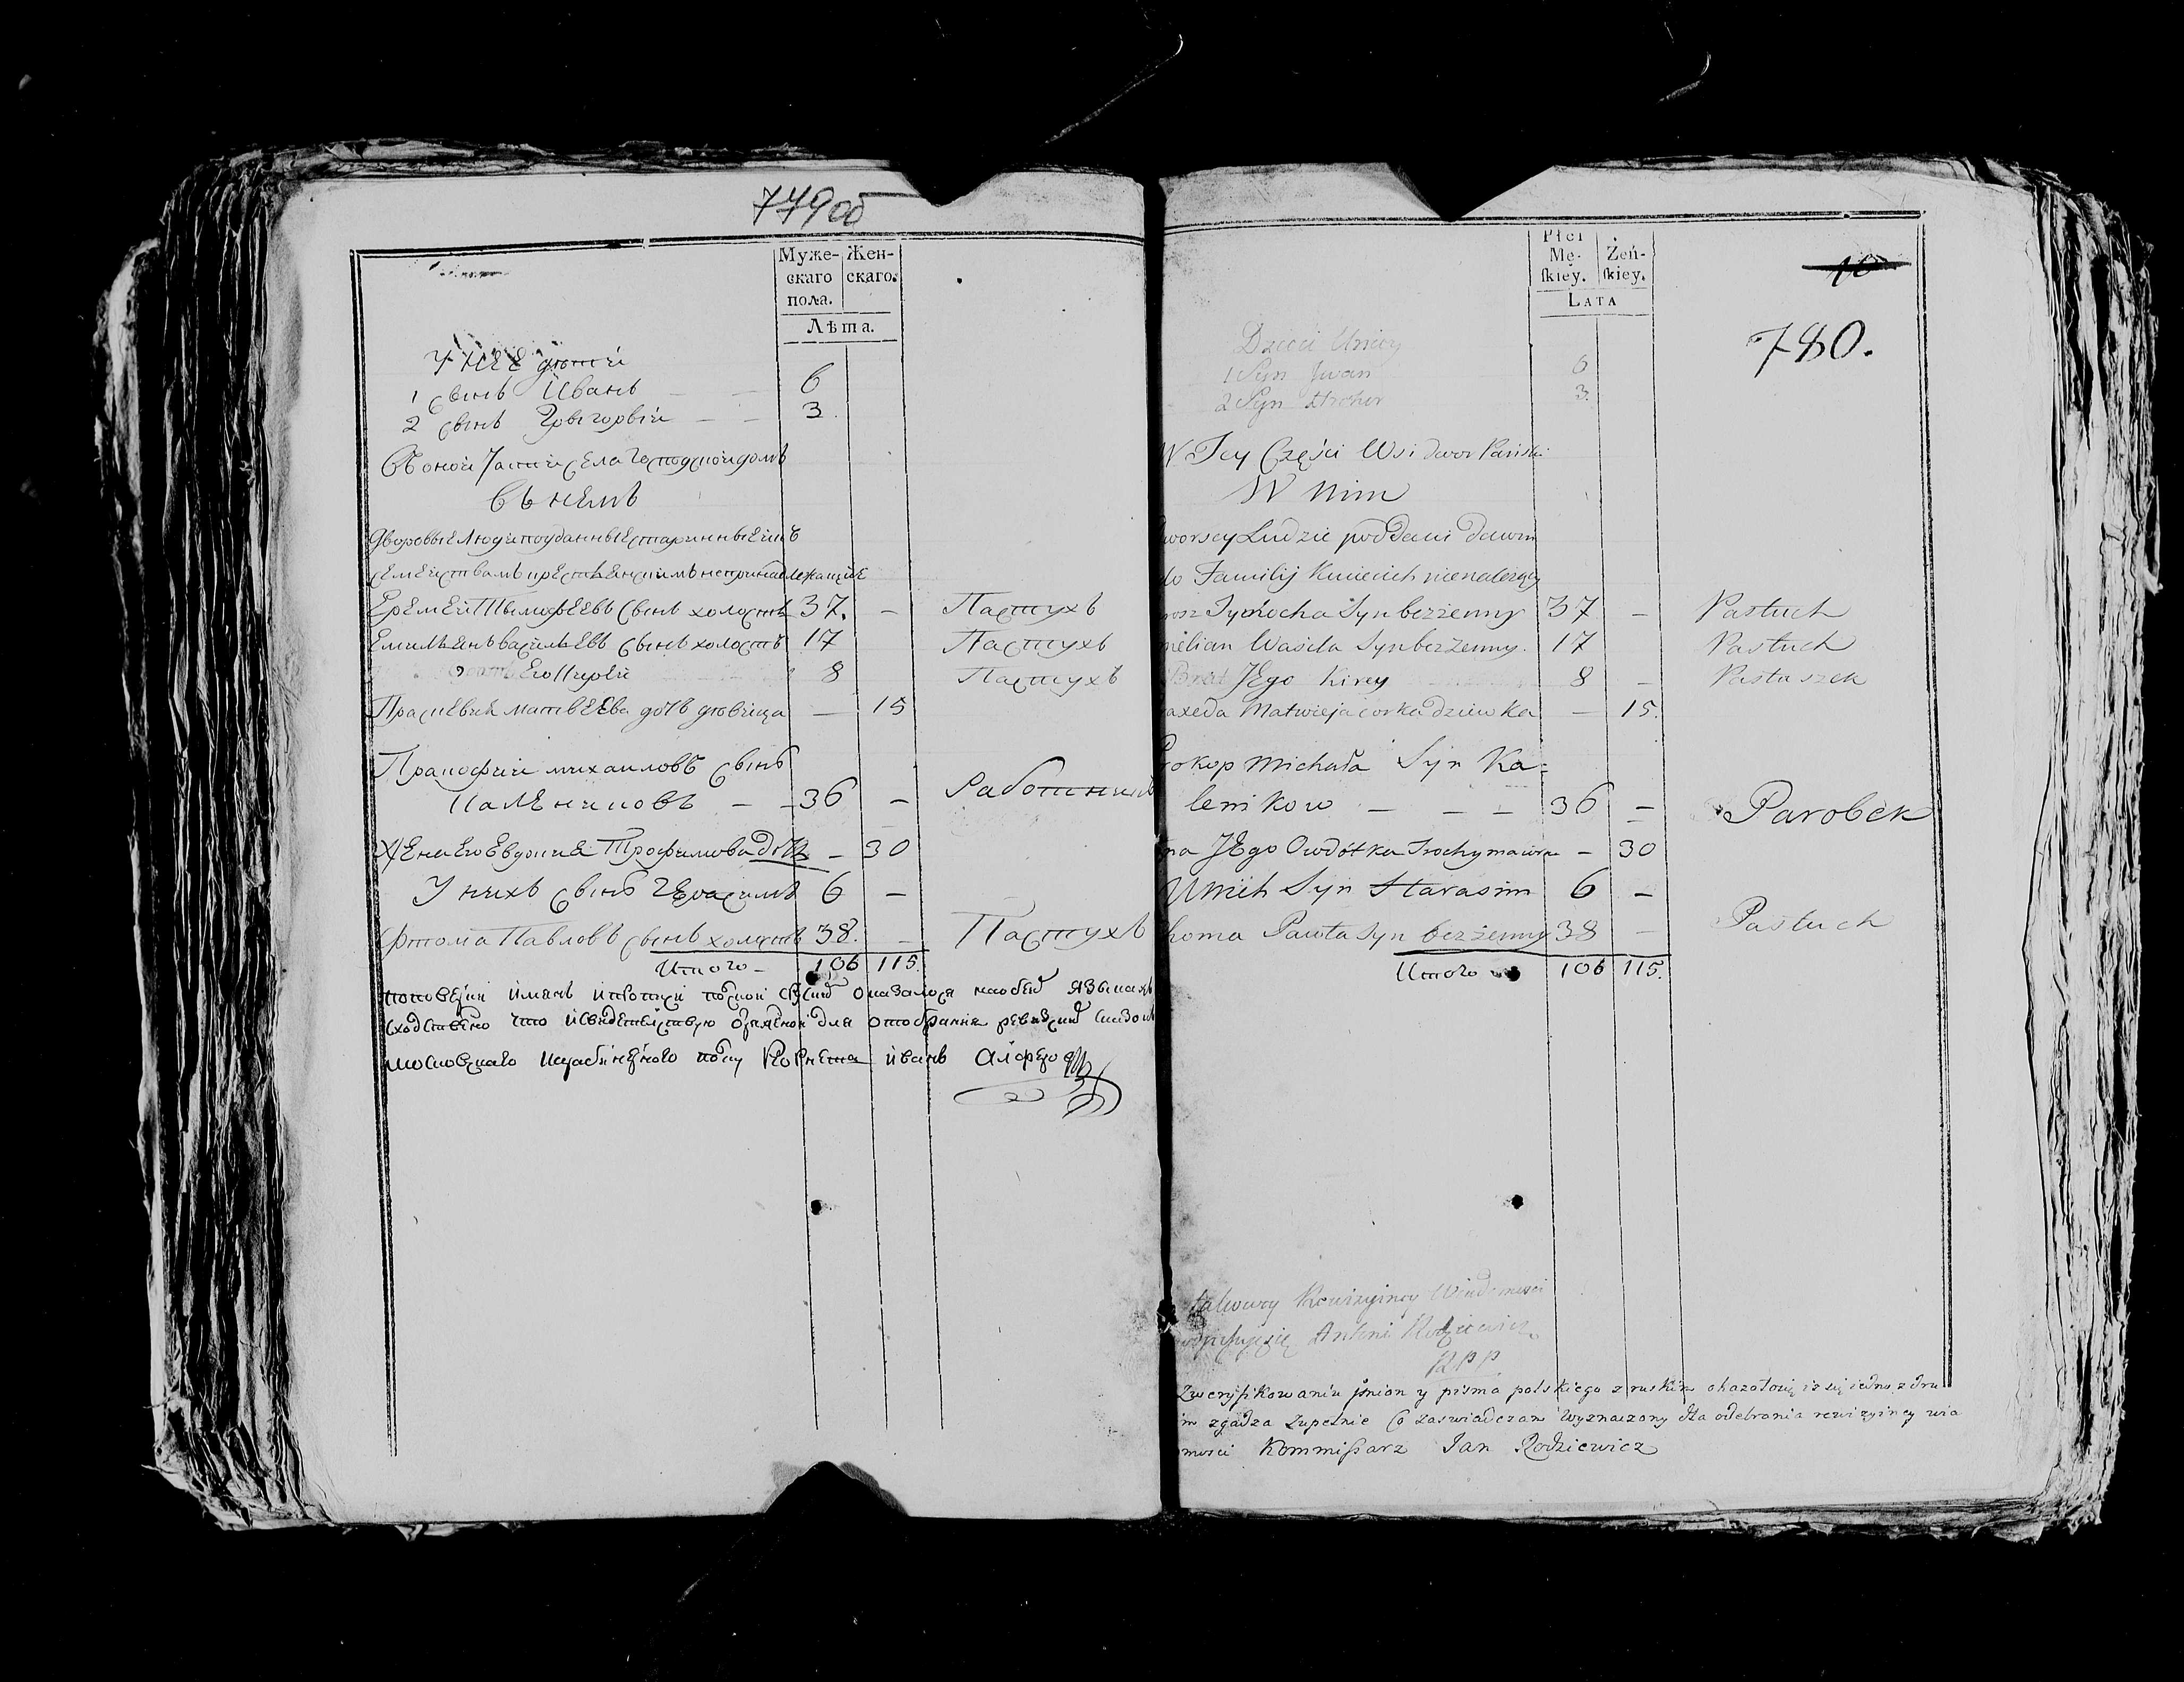 779об
Муже- Жен-
скаго скаго.
пола.
Лѣта.
У нее дѣтей
1 сынъ Иванъ — — 6
2 сынъ Григорвій — — 3.
Въ оной части села Господской домъ
въ немъ
Дворовые люди подданные старинные имъ
семействамъ крестьенскимъ непринадлежащие
Еремей Тимофеевъ сынъ холостъ 37. — Пастухъ
Емильенъ васильевъ сынъ холостъ 17 Пастухъ
Братъ Его Кирей 8 Пастухъ
Прасковья матвеева дочь дѣвица — 15
Пракофий михаиловъ сынъ
Калениковъ — — 36 — Работникъ
Жена Его Евдокия Трофимова дочь — 30
У нихъ сынъ Герасимъ 6 —
Фтома Павловъ сынъ холостъ 38. — Пастухъ
Итого — 106 115.
оказалося на обеих языкахъ
сходственно что и свидетельствую для отобрания ревизских сказокъ
полку Корнета иванъ
Płci
Mę- Żeń-
skiey. skiey.
LATA
10
780.
Dzieci Uniey
1 Syn Jwan 6
2 Syn 3.
W Tey Części Wsi dwor Pański
W Nim
worscy Ludzie poddani dawni
do Familij Kmiecich nienależący
rosz Tymocha Syn bezżenny 37 — Pastuch
melian Wasila Syn bezżenny. 17 Pastuch
Brat JEgo Kirey 8 — Pastuszek
axeda Matwieja corka dziewka — 15.
rokop Michała Syn Ka-
lenikow — — — 36 — Parobek
na JEgo Owdótka Trochymowna — 30
Unich Syn Harasim 6 —
homa Pawła Syn bezżenny 38 — Pastuch
Итого 106 115.
Rewizyiney Wiadomosci
Antoni Rodziewicz
RPP
Zweryfikowaniu Jmion y pisma polskiego z ruskim okazałosię iż się iedno z dru
im zgadza zupełnie Co zaswiadczam Wyznaczony dla odebrania rewizyiney wia
mosci Kommissarz Jan Rodziewicz